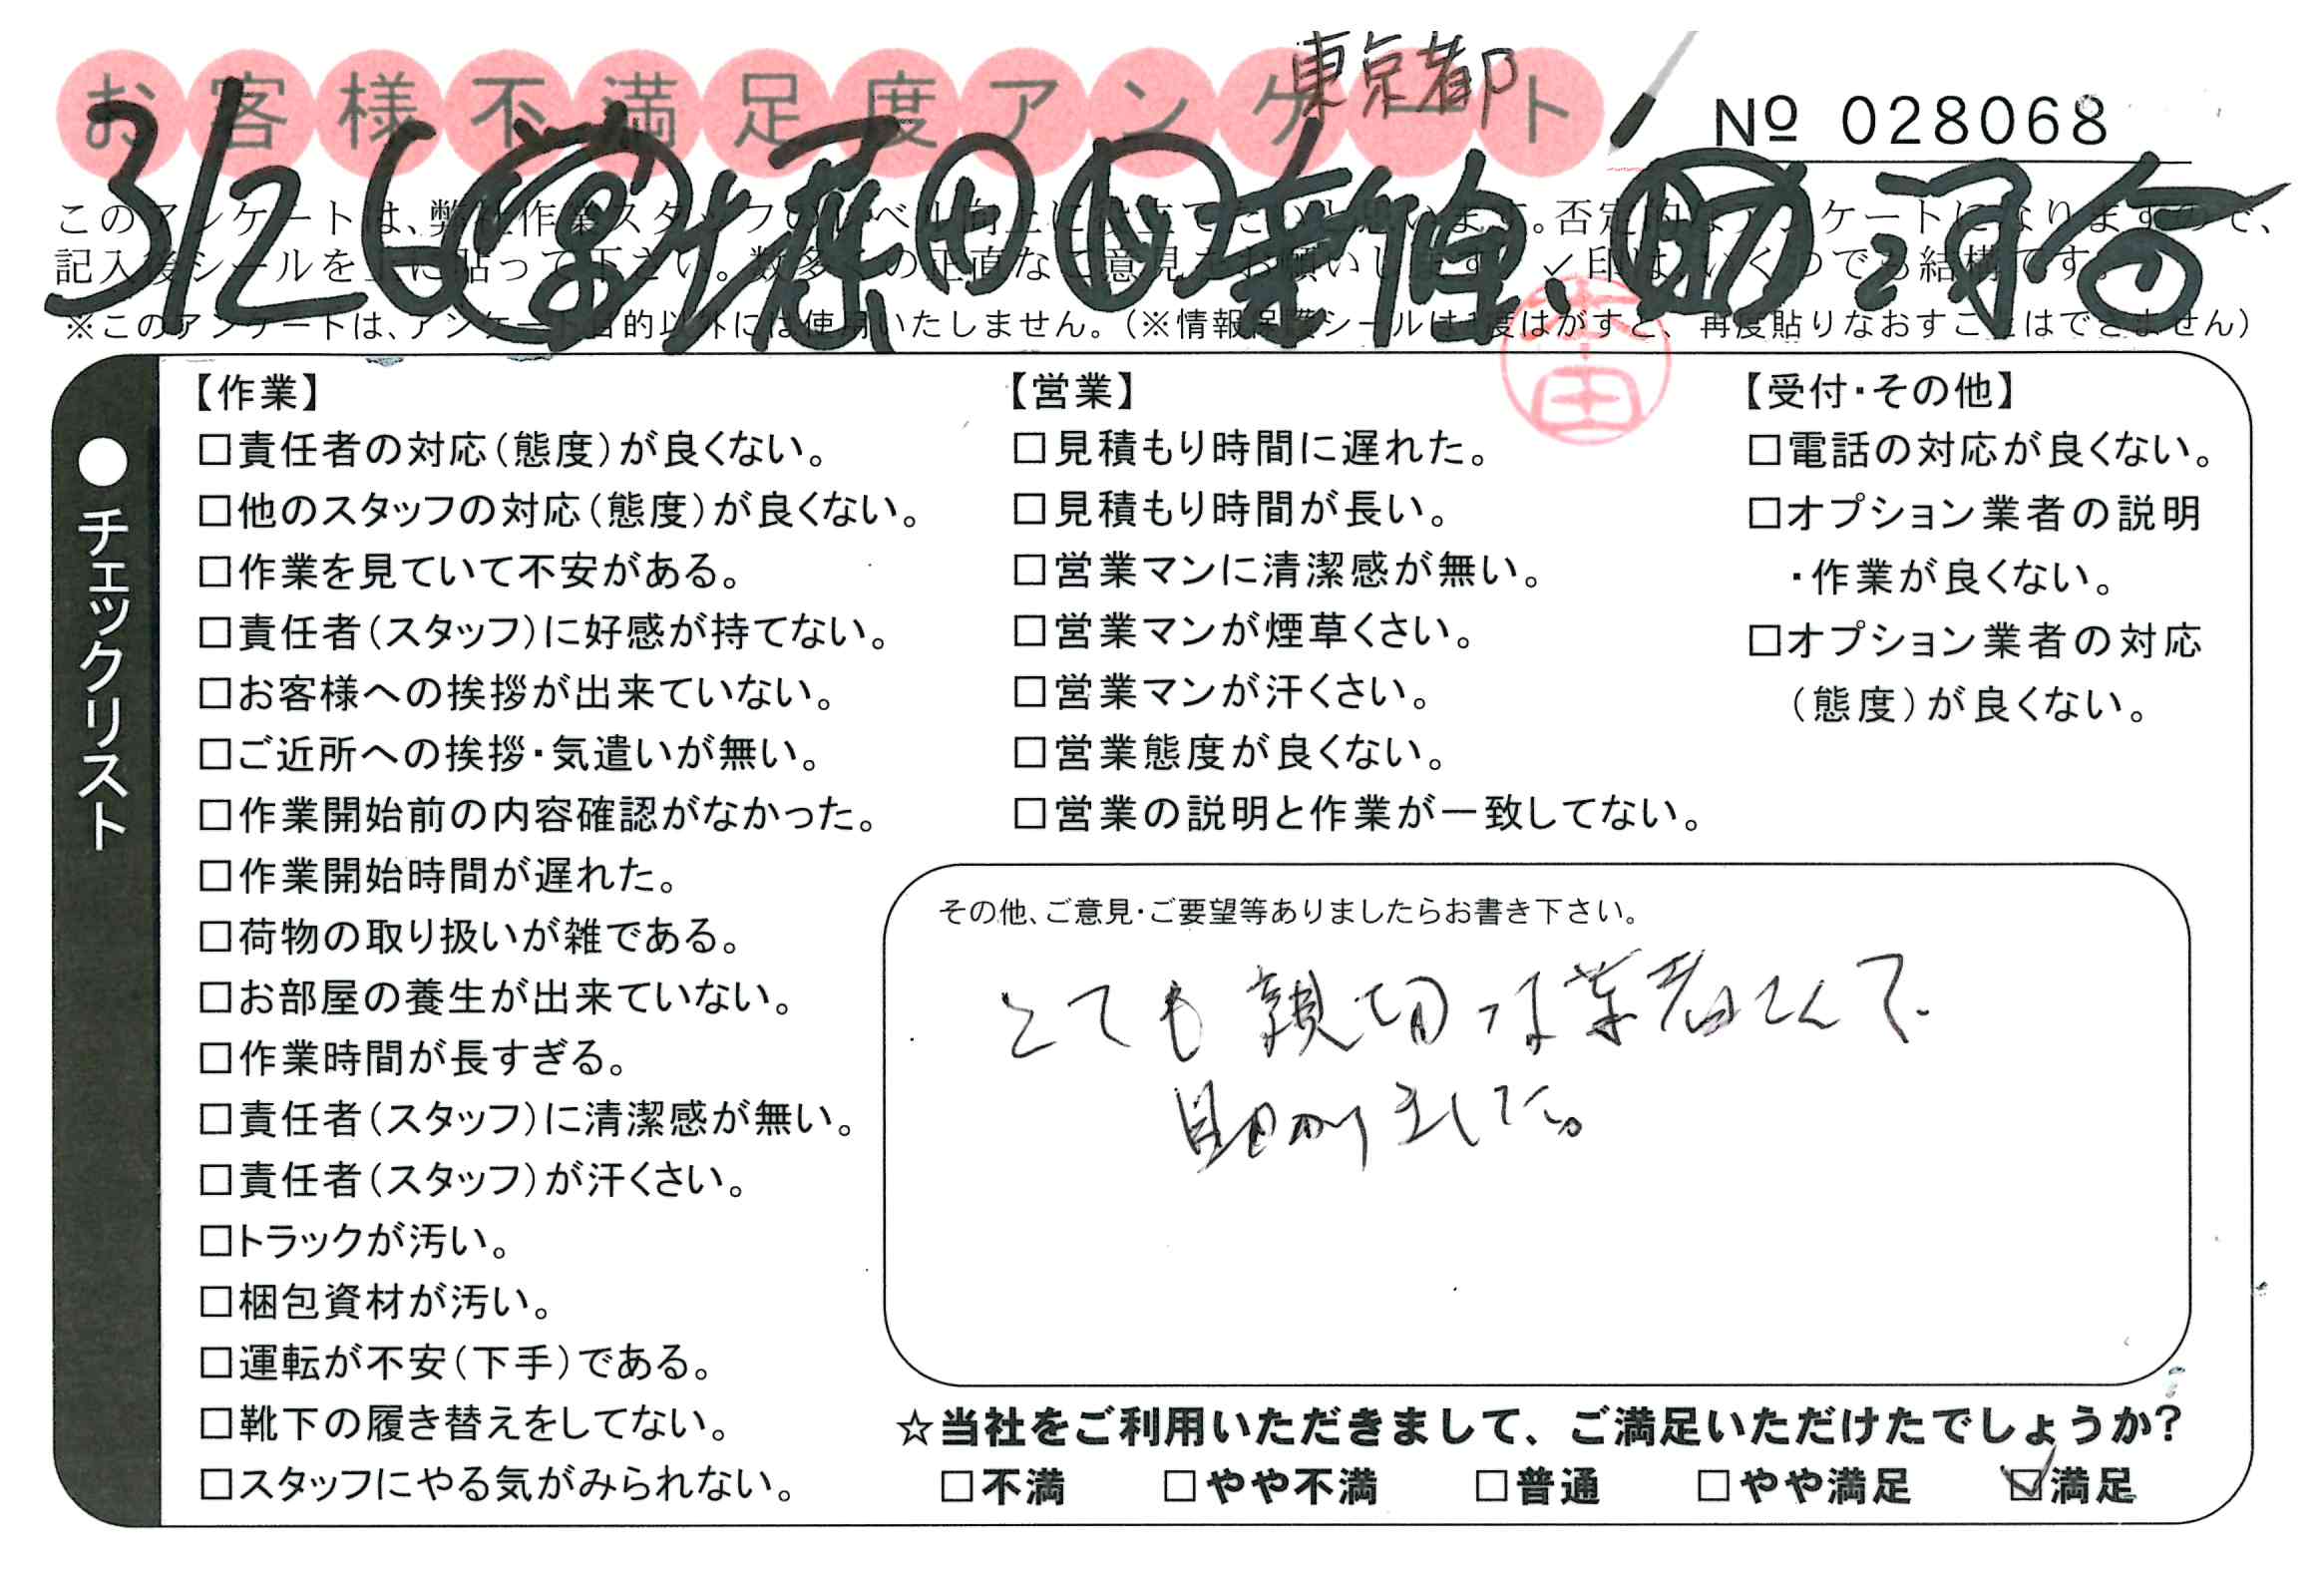 お客様不満足度アンケート
東京都
№ 028068
3/26
このアンケートは、弊社作業スタッフのレベル向上に役立てたいと思います。否定的なアンケートになりますので、
記入後シールを上に貼って下さい。数多くの正直なご意見をお願いします。✓印はいくつでも結構です。
※このアンケートは、アンケート目的以外には使用いたしません。（※情報保護シールは1度はがすと、再度貼りなおすことはできません）
●チェックリスト
【作業】
□責任者の対応（態度）が良くない。
□他のスタッフの対応（態度）が良くない。
□作業を見ていて不安がある。
□責任者（スタッフ）に好感が持てない。
□お客様への挨拶が出来ていない。
□ご近所への挨拶・気遣いが無い。
□作業開始前の内容確認がなかった。
□作業開始時間が遅れた。
□荷物の取り扱いが雑である。
□お部屋の養生が出来ていない。
□作業時間が長すぎる。
□責任者（スタッフ）に清潔感が無い。
□責任者（スタッフ）が汗くさい。
□トラックが汚い。
□梱包資材が汚い。
□運転が不安（下手）である。
□靴下の履き替えをしてない。
□スタッフにやる気がみられない。
【営業】
□見積もり時間に遅れた。
□見積もり時間が長い。
□営業マンに清潔感が無い。
□営業マンが煙草くさい。
□営業マンが汗くさい。
□営業態度が良くない。
□営業の説明と作業が一致してない。
【受付・その他】
□電話の対応が良くない。
□オプション業者の説明
・作業が良くない。
□オプション業者の対応
（態度）が良くない。
その他、ご意見・ご要望等ありましたらお書き下さい。
とても親切な業者さんで
助かりました。
☆当社をご利用いただきまして、ご満足いただけたでしょうか？
□不満 □やや不満 □普通 □やや満足 ☑満足